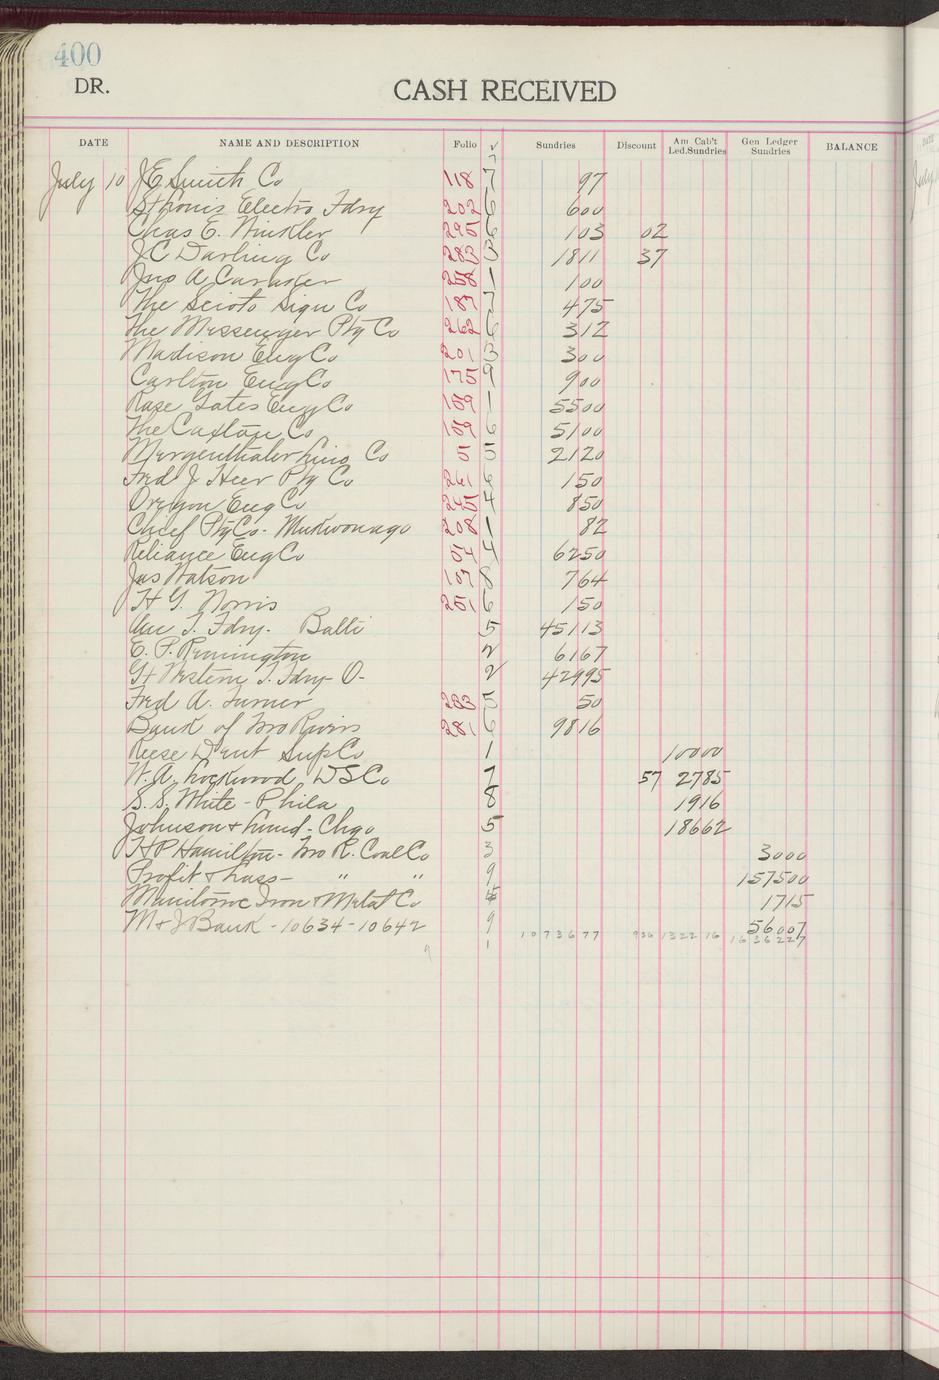 400
DR. CASH RECEIVED
DATE NAME AND DESCRIPTION Folio √ Sundries Discount Am Cab't Led.Sundries Gen Ledger Sundries BALANCE
7
July 10 J E Smith Co 118 7 97
St Louis Electro Fdry 202 6 600
Chas E. Winkler 295 6 103 02
J C Darling Co 283 3 1811 37
Jno A. Caraker 258 1 100
The Scioto Sign Co 187 7 475
The Messenger Ptg Co 262 6 312
Madison Eng Co 201 3 300
Carlton Eng Co 175 9 900
Rase Gates Eng Co 109 1 5500
The Caxton Co 109 6 5100
Mergenthaler Lino Co 5 2120
Fred J Heer Ptg Co 6 150
Oregon Eng Co 4 850
Chief Ptg Co - Mukwonago 208 1 82
Reliance Eng Co 4 6250
Jas Watson 107 8 764
H G. Norris 251 6 150
Am T. Fdry. Balti 5 45113
E. P. Remington 2 6167
Gt Western T. Fdry - O - 2 42995
Fred A. Turner 283 5 50
Bank of Two Rivers 281 6 9816
Reese Dent Sup Co 1 10000
W. A. Lockwood, D S Co 7 57 2785
S. S. White - Phila 8 1916
Johnson & Lund - Chgo 5 18662
H P Hamilton - Two R. Coal Co 3 3000
Profit & Loss - " " 9 157500
Manitowoc Iron & Metal Co 5 1715
M & J Bank - 10634 - 10642 9 56007
1 1073677 936 132216 1636227
9